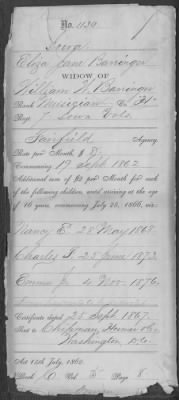 No. 1139.
Iowa
Eliza Jane Baninger
WIDOW OF
William H. Baninger
Rank Musician Co. "H"
Reg't 7 Iowa Vols.
Fairfield Agency.
Rate per Month, $ 8
Commencing 19 Sept 1862
Additional sum of $2 per month for each
of the following children, until arriving at the age
of 16 years, commencing July 25, 1866, viz:
Nancy E. 28 May 1868.
Charles F. 25 June 1873
Emma J. 4 Nov. 1876.
Certificate dated 25 Sept. 1867.
Sent to Chipman, Hosmer & Co.
Washington D.C.
Act 14th July, 1862.
Book C Vol. 5 Page 8